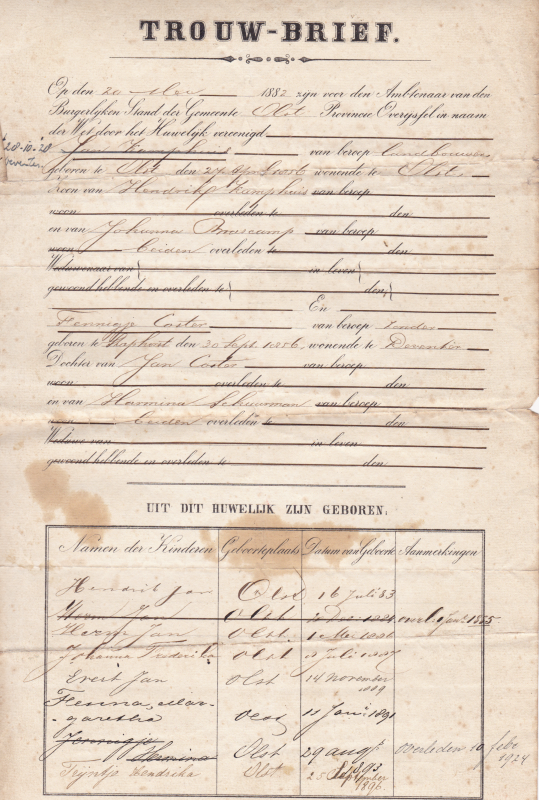 TROUW-BRIEF.
Op den 20 Mei 1882 zijn voor den Ambtenaar van den
Burgerlijken Stand der Gemeente Olst Provencie Overijssel in naam
der Wet door het Huwelijk vereenigd
28-10-28
Deventer
Jan Kamphuis van beroep landbouwer
geboren te Olst den 1856 wonende te Olst
Zoon van Hendrik Kamphuis van beroep
woon overleden te den
en van Johanna van beroep
woon beiden overleden te den
Weduwenaar van in leven
gewoond hebbende en overleden te den
En
Fennigje Coster van beroep zonder
geboren te Staphorst den 30 Sept. 1856, wonende te Deventer
Dochter van Jan Coster van beroep
woon overleden te den
en van Harmina Schuurman van beroep
beiden overleden te den
Weduwe van in leven
gewoond hebbende en overleden te den
UIT DIT HUWELIJK ZIJN GEBOREN:
Namen der Kinderen Geboorteplaats Datum van Geboorte Aanmerkingen
Hendrik Jan Olst 16 Juli 83
Harm Jan Olst Dec. overl. Jan. 1885
Harm Jan Olst 1 Mei 1886
Johanna Frederika Olst Juli 1887
Evert Jan Olst 14 November
1889
Fenna, Mar-
garetha Olst 11 Jan. 1891
Jennigje
Hermina Olst 29 aug. 1893 overleden 10 febr
1924
Trijntje Hendrika Olst 25 September
1896